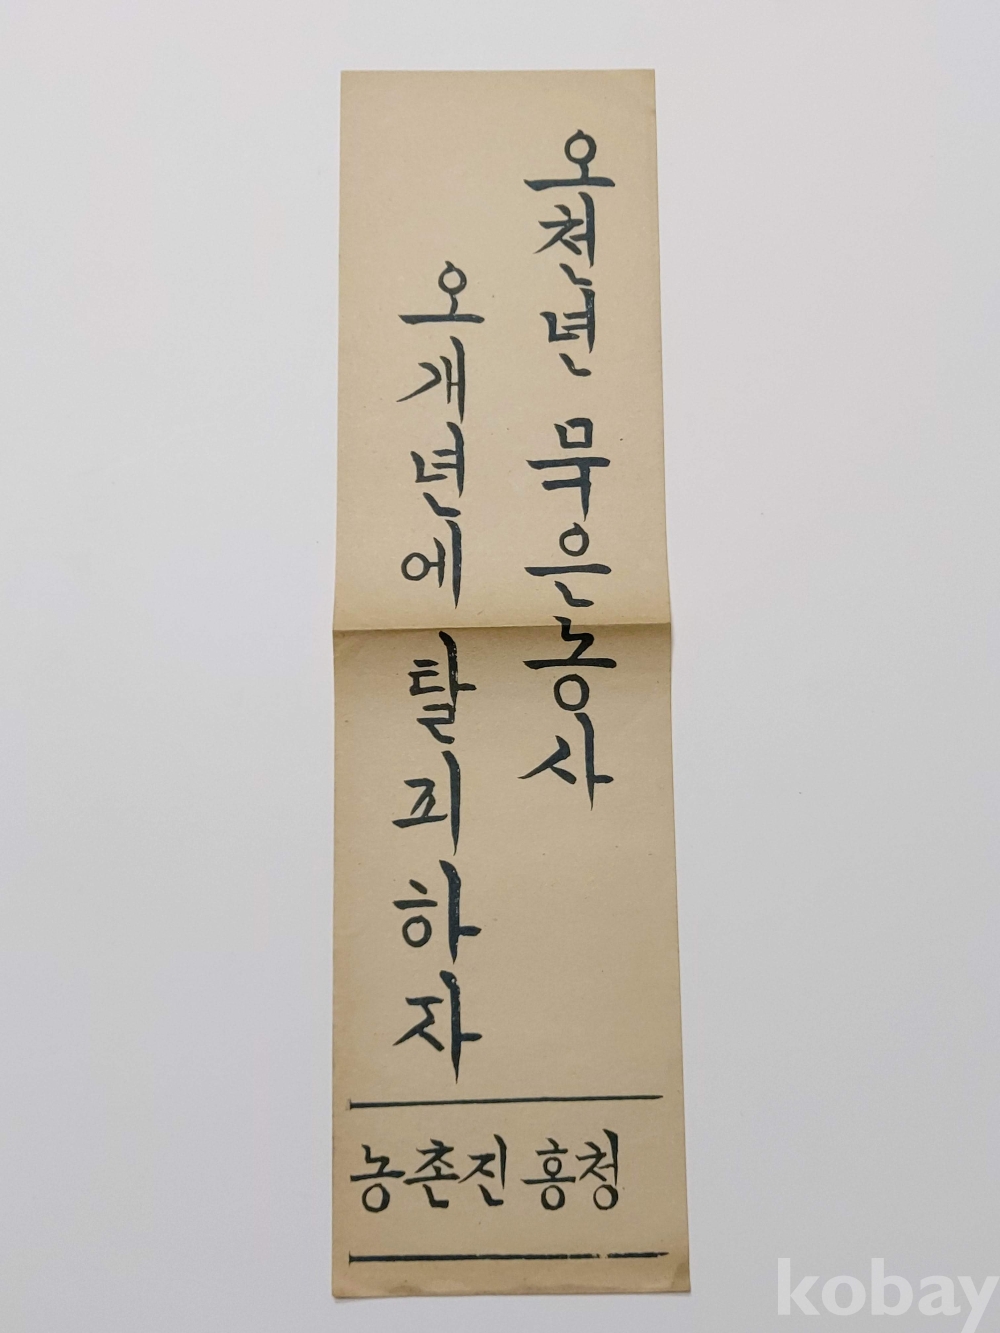 오천년 묵은 농사
오개년에 탈피하자
농촌진흥청
kobay